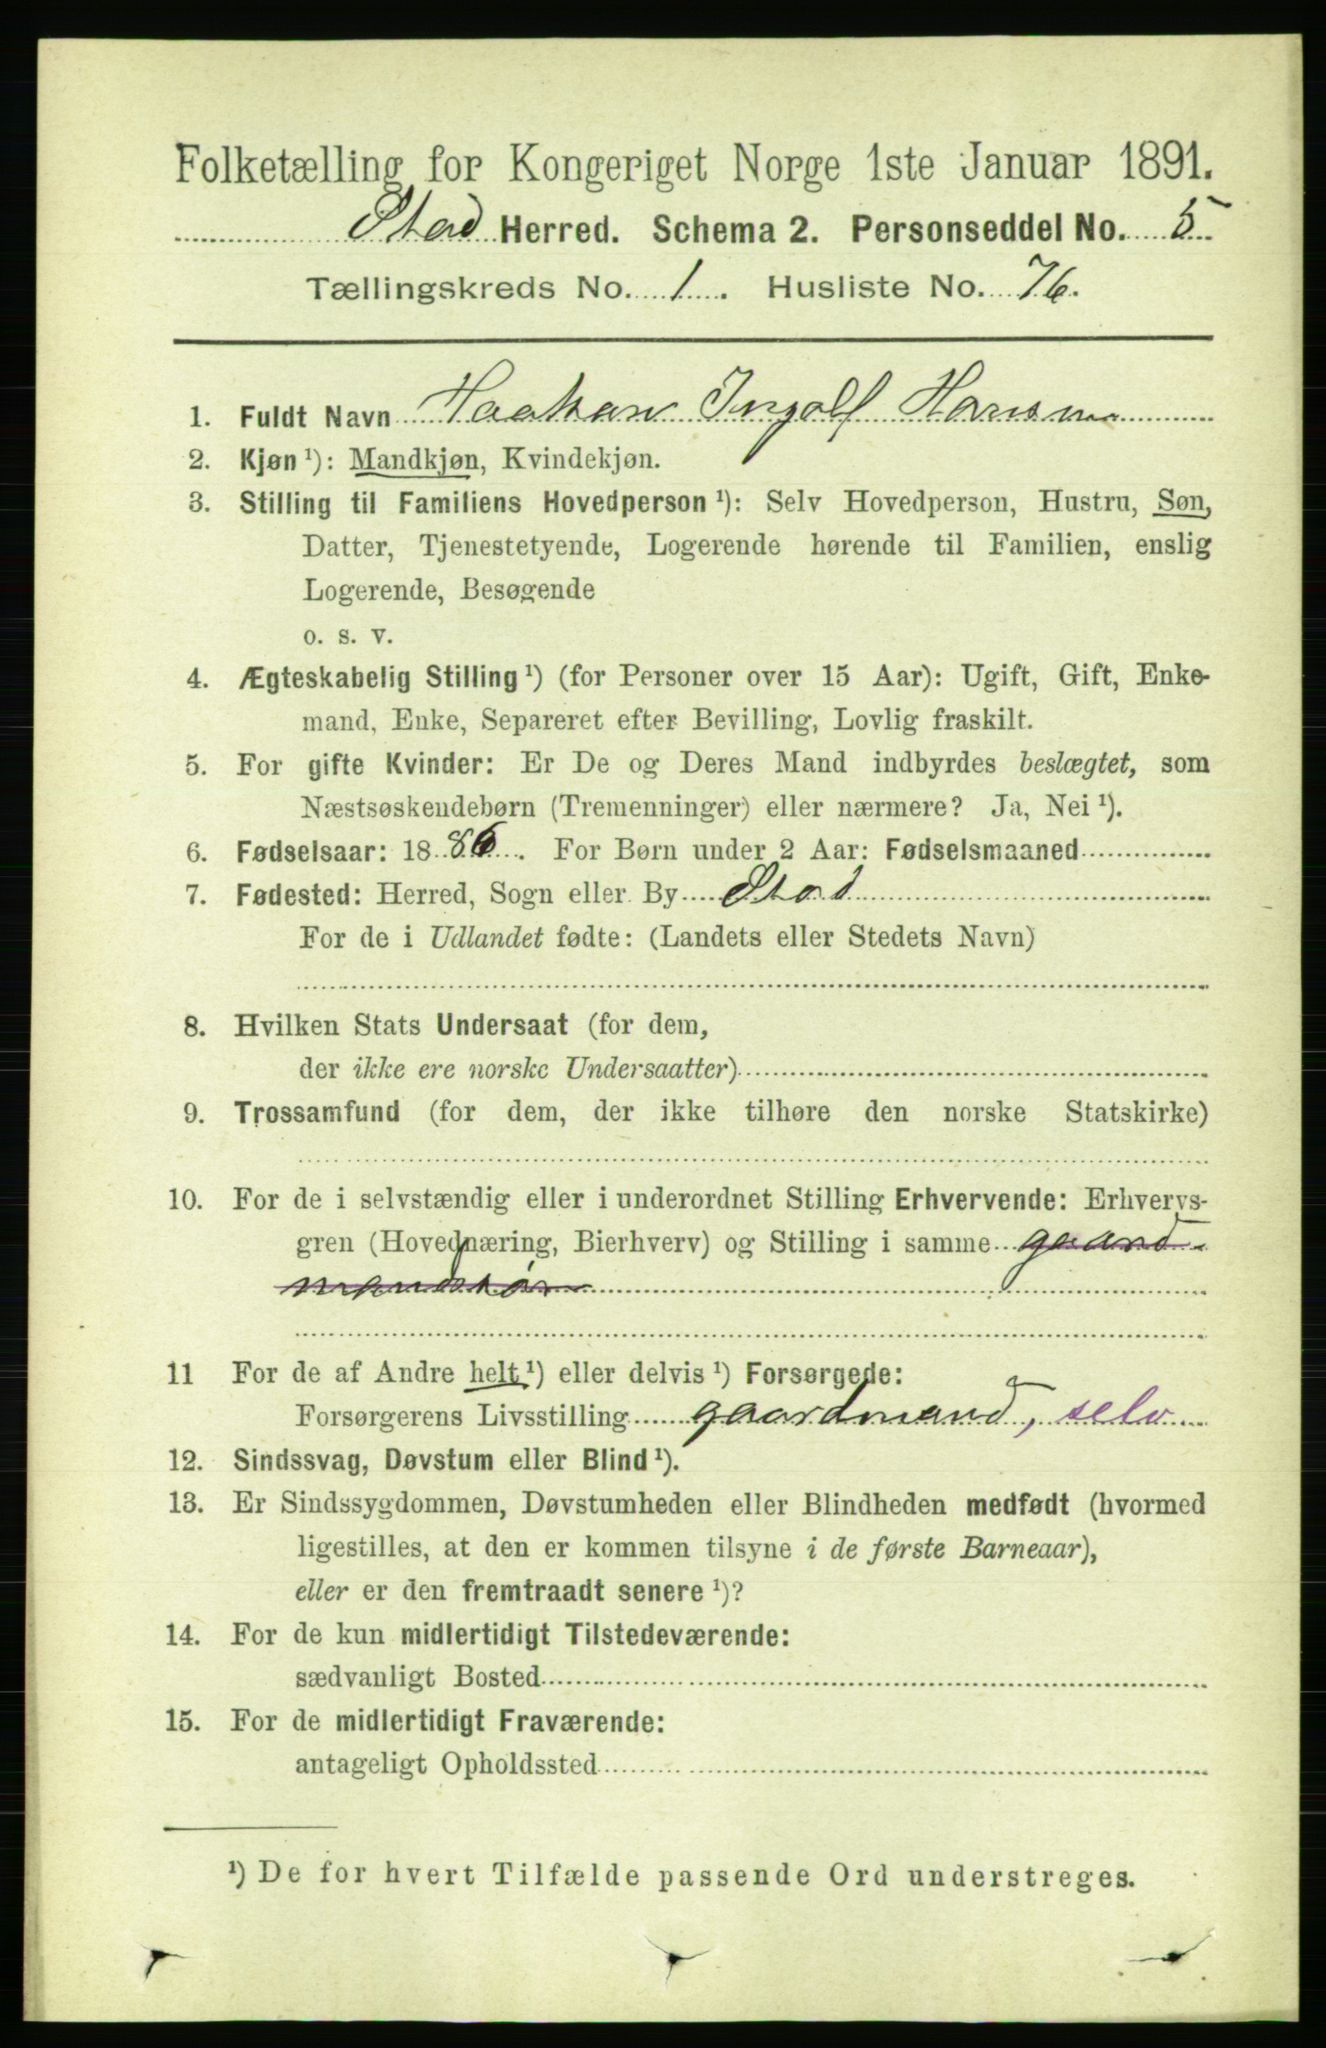 Folketælling for Kongeriget Norge 1ste Januar 1891.
Stod Herred. Schema 2. Personseddel No. 5
Tællingskreds No. 1. Husliste No. 76.
1. Fuldt Navn Haakan Ingolf Hansen
2. Kjøn ¹): Mandkjøn, Kvindekjøn.
3. Stilling til Familiens Hovedperson ¹): Selv Hovedperson, Hustru, Søn,
Datter, Tjenestetyende, Logerende hørende til Familien, enslig
Logerende, Besøgende
o. s. v.
4. Ægteskabelig Stilling ¹) (for Personer over 15 Aar): Ugift, Gift, Enke-
mand, Enke, Separeret efter Bevilling, Lovlig fraskilt.
5. For gifte Kvinder: Er De og Deres Mand indbyrdes beslægtet, som
Næstsøskendebørn (Tremenninger) eller nærmere? Ja, Nei ¹).
6. Fødselsaar: 1886. For Børn under 2 Aar: Fødselsmaaned
7. Fødested: Herred, Sogn eller By Stod
For de i Udlandet fødte: (Landets eller Stedets Navn)
8. Hvilken Stats Undersaat (for dem,
der ikke ere norske Undersaatter)
9. Trossamfund (for dem, der ikke tilhøre den norske Statskirke)
10. For de i selvstændig eller i underordnet Stilling Erhvervende: Erhvervs-
gren (Hovednæring, Bierhverv) og Stilling i samme gaard-
mandsøn
11 For de af Andre helt ¹) eller delvis ¹) Forsørgede:
Forsørgerens Livsstilling gaardmand, selv
12. Sindssvag, Døvstum eller Blind ¹).
13. Er Sindssygdommen, Døvstumheden eller Blindheden medfødt (hvormed
ligestilles, at den er kommen tilsyne i de første Barneaar),
eller er den fremtraadt senere ¹)?
14. For de kun midlertidigt Tilstedeværende:
sædvanligt Bosted
15. For de midlertidigt Fraværende:
antageligt Opholdssted
¹) De for hvert Tilfælde passende Ord understreges.